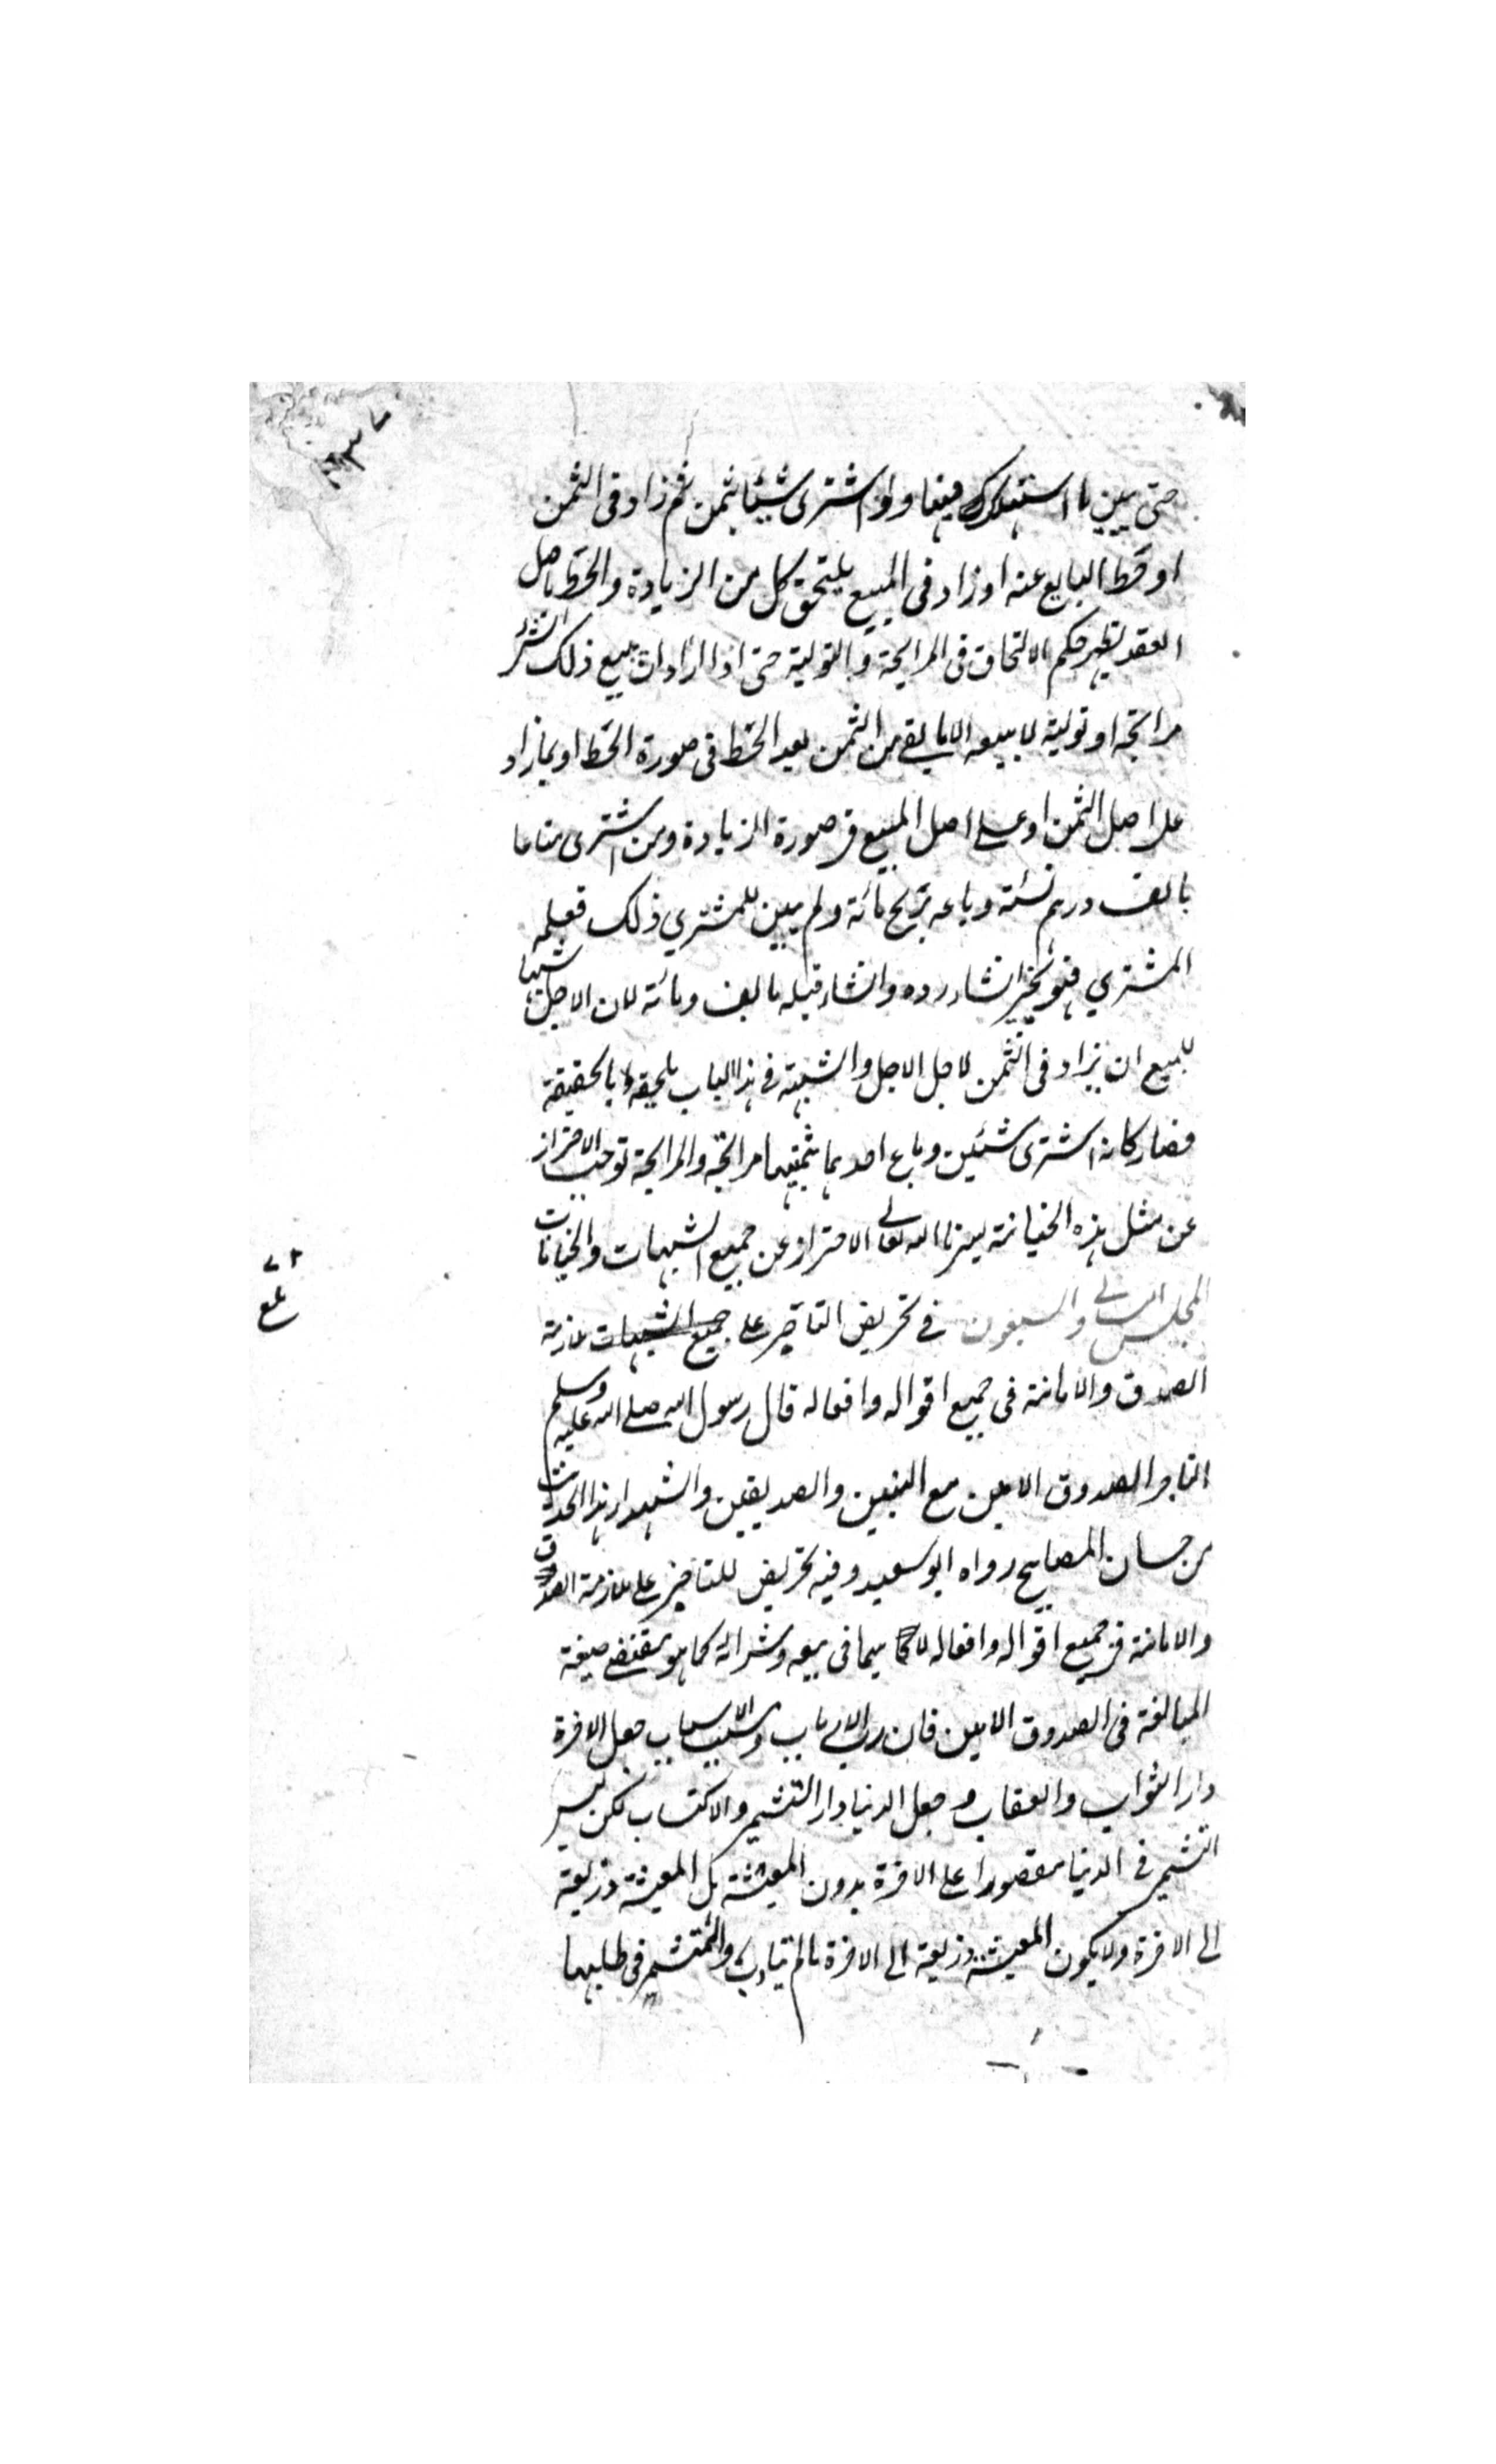 حتى يبين ما استهلك منها ولو اشترى شيئا بثمن ثم زاد في الثمن
او حط البايع عنه او زاد في المبيع يلتحق كل من الزيادة والحط باصل
العقد يظهر حكم الالتحاق في المرابحة والتولية حتى اذا اراد ان يبيع ذلك الشئ
مرابحة او تولية لا يبيعه الا بما بقي من الثمن بعد الحط في صورة الحط او بما زاد
على اصل الثمن او على اصل المبيع في صورة الزيادة ومن اشترى متاعا
بالف درهم نسئة وباعه بربح مائة ولم يبين للمشتري ذلك فعلمه
المشتري فهو مخير انشاء رده وانشاء قبله بالف ومائة لان الاجل شبها
للمبيع ان يزاد في الثمن لاجل الاجل والشبهة في هذا الباب ملحقة بالحقيقة
فصار كانه اشترى شئين وباع احدهما بثمنهما مرابحة والمرابحة توجب الاحتراز
عن مثل هذه الخيانة يسرنا الله تعالى الاحتراز عن جميع الشبهات والخيانات
المجلس والسبعون في تحريض التاجر على جميع الشبهات ملازمة
الصدق والامانة في جميع اقواله وافعاله قال رسول الله صلى الله عليه وسلم
التاجر الصدوق الامين مع النبيين والصديقين والشهداء هذا الحديث
من حسان المصابيح رواه ابو سعيد وفيه تحريض للتاجر على ملازمة الصدق
والامانة في جميع اقواله وافعاله لا سيما في بيعه وشرائه كما هو مقتضى صيغة
المبالغة في الصدوق الامين فان رب الارباب ومسبب الاسباب جعل الاخرة
دار الثواب والعقاب و جعل الدنيا دار التشمر والاكتساب لكن ليس
التشمر في الدنيا مقصورا على الاخرة بدون المعيشة بل المعيشة ذريعة
الى الاخرة ولا يكون المعيشة ذريعة الى الاخرة ما لم يتادب المتشمر في طلبها